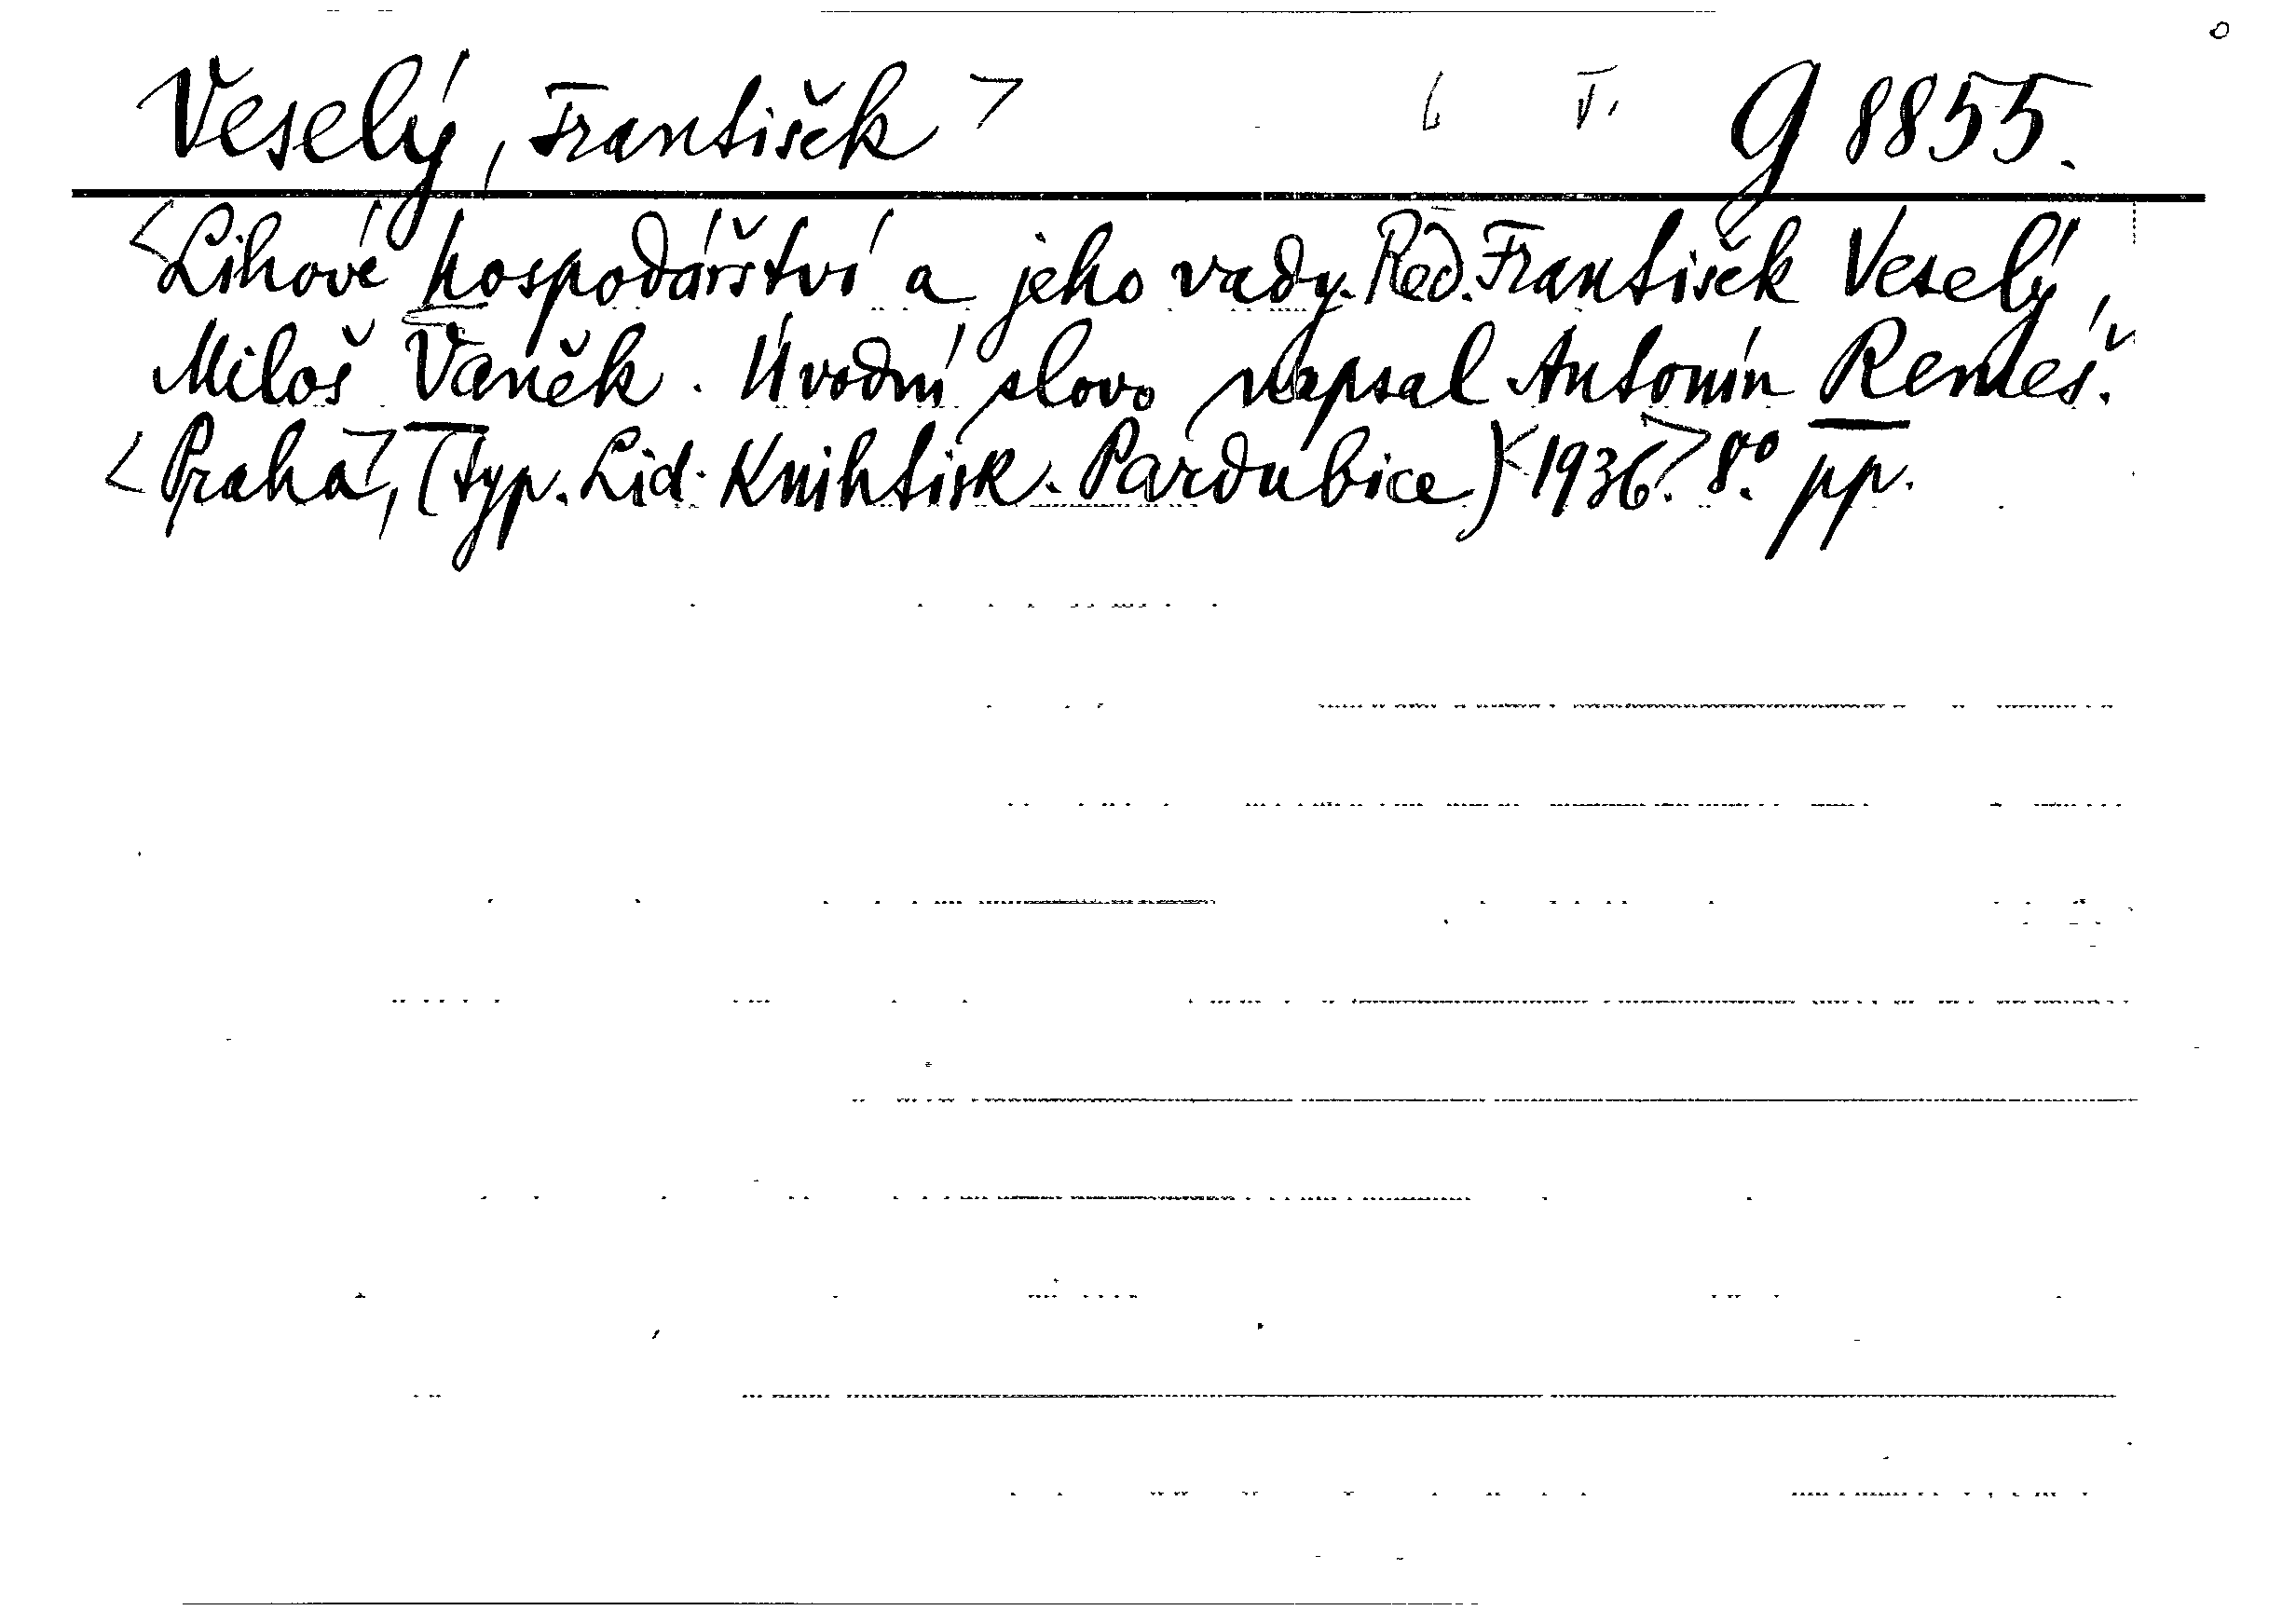 Veselý, František G 8855.
Lihové hospodářství a jeho vady. Red. František Veselý,
Miloš Vaněk. Úvodní slovo napsal Antonín Remeš.
Praha, (typ. Lid. Knihtisk. Pardubice) 1936. 8º. pp.